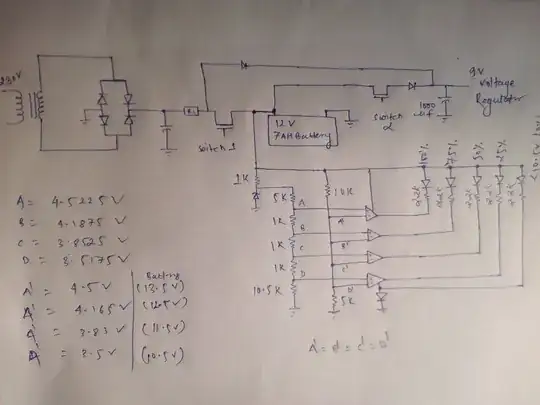 230V
R1
switch 1
12 V
7AH Battery
switch
2
1000
uf
9V
voltage
Regulator
100%
75%
50%
25%
1K
5K
A
1K
B
1K
C
1K
D
10.5K
10K
A'
B'
C'
D'
5K
A = 4.5225 V
B = 4.1875 V
C = 3.8525 V
D = 3.5175 V
Battery
A' = 4.5 V (13.5V)
= 4.165 V (12.5V)
= 3.83 V (11.5V)
= 3.5 V (10.5V)
A' = B' = C' = D'